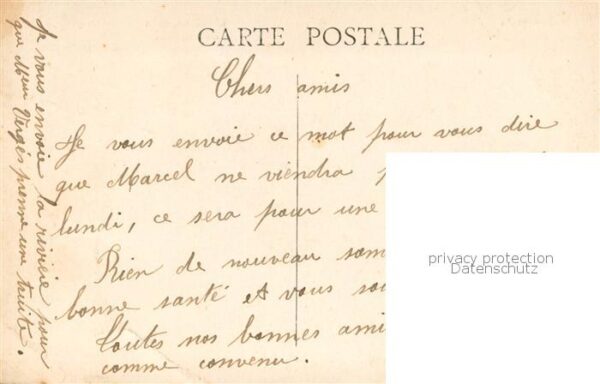 CARTE POSTALE
Chers amis
Je vous envoie ce mot pour vous dire
que Marcel ne viendra p
lundi, ce sera pour une
Rien de nouveau som
bonne santé et vous sou
Toutes nos bonnes ami
comme convenu.
Je vous envoie la rivière pour
que Mear Vergès prenne une truite.
privacy protection
Datenschutz